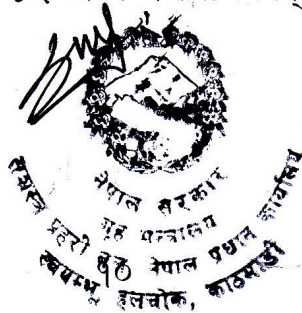 नेपाल सरकार
गृह मन्त्रालय
सशस्त्र प्रहरी बल नेपाल प्रधान कार्यालय
स्वयम्भू हलचोक, काठमाडौं